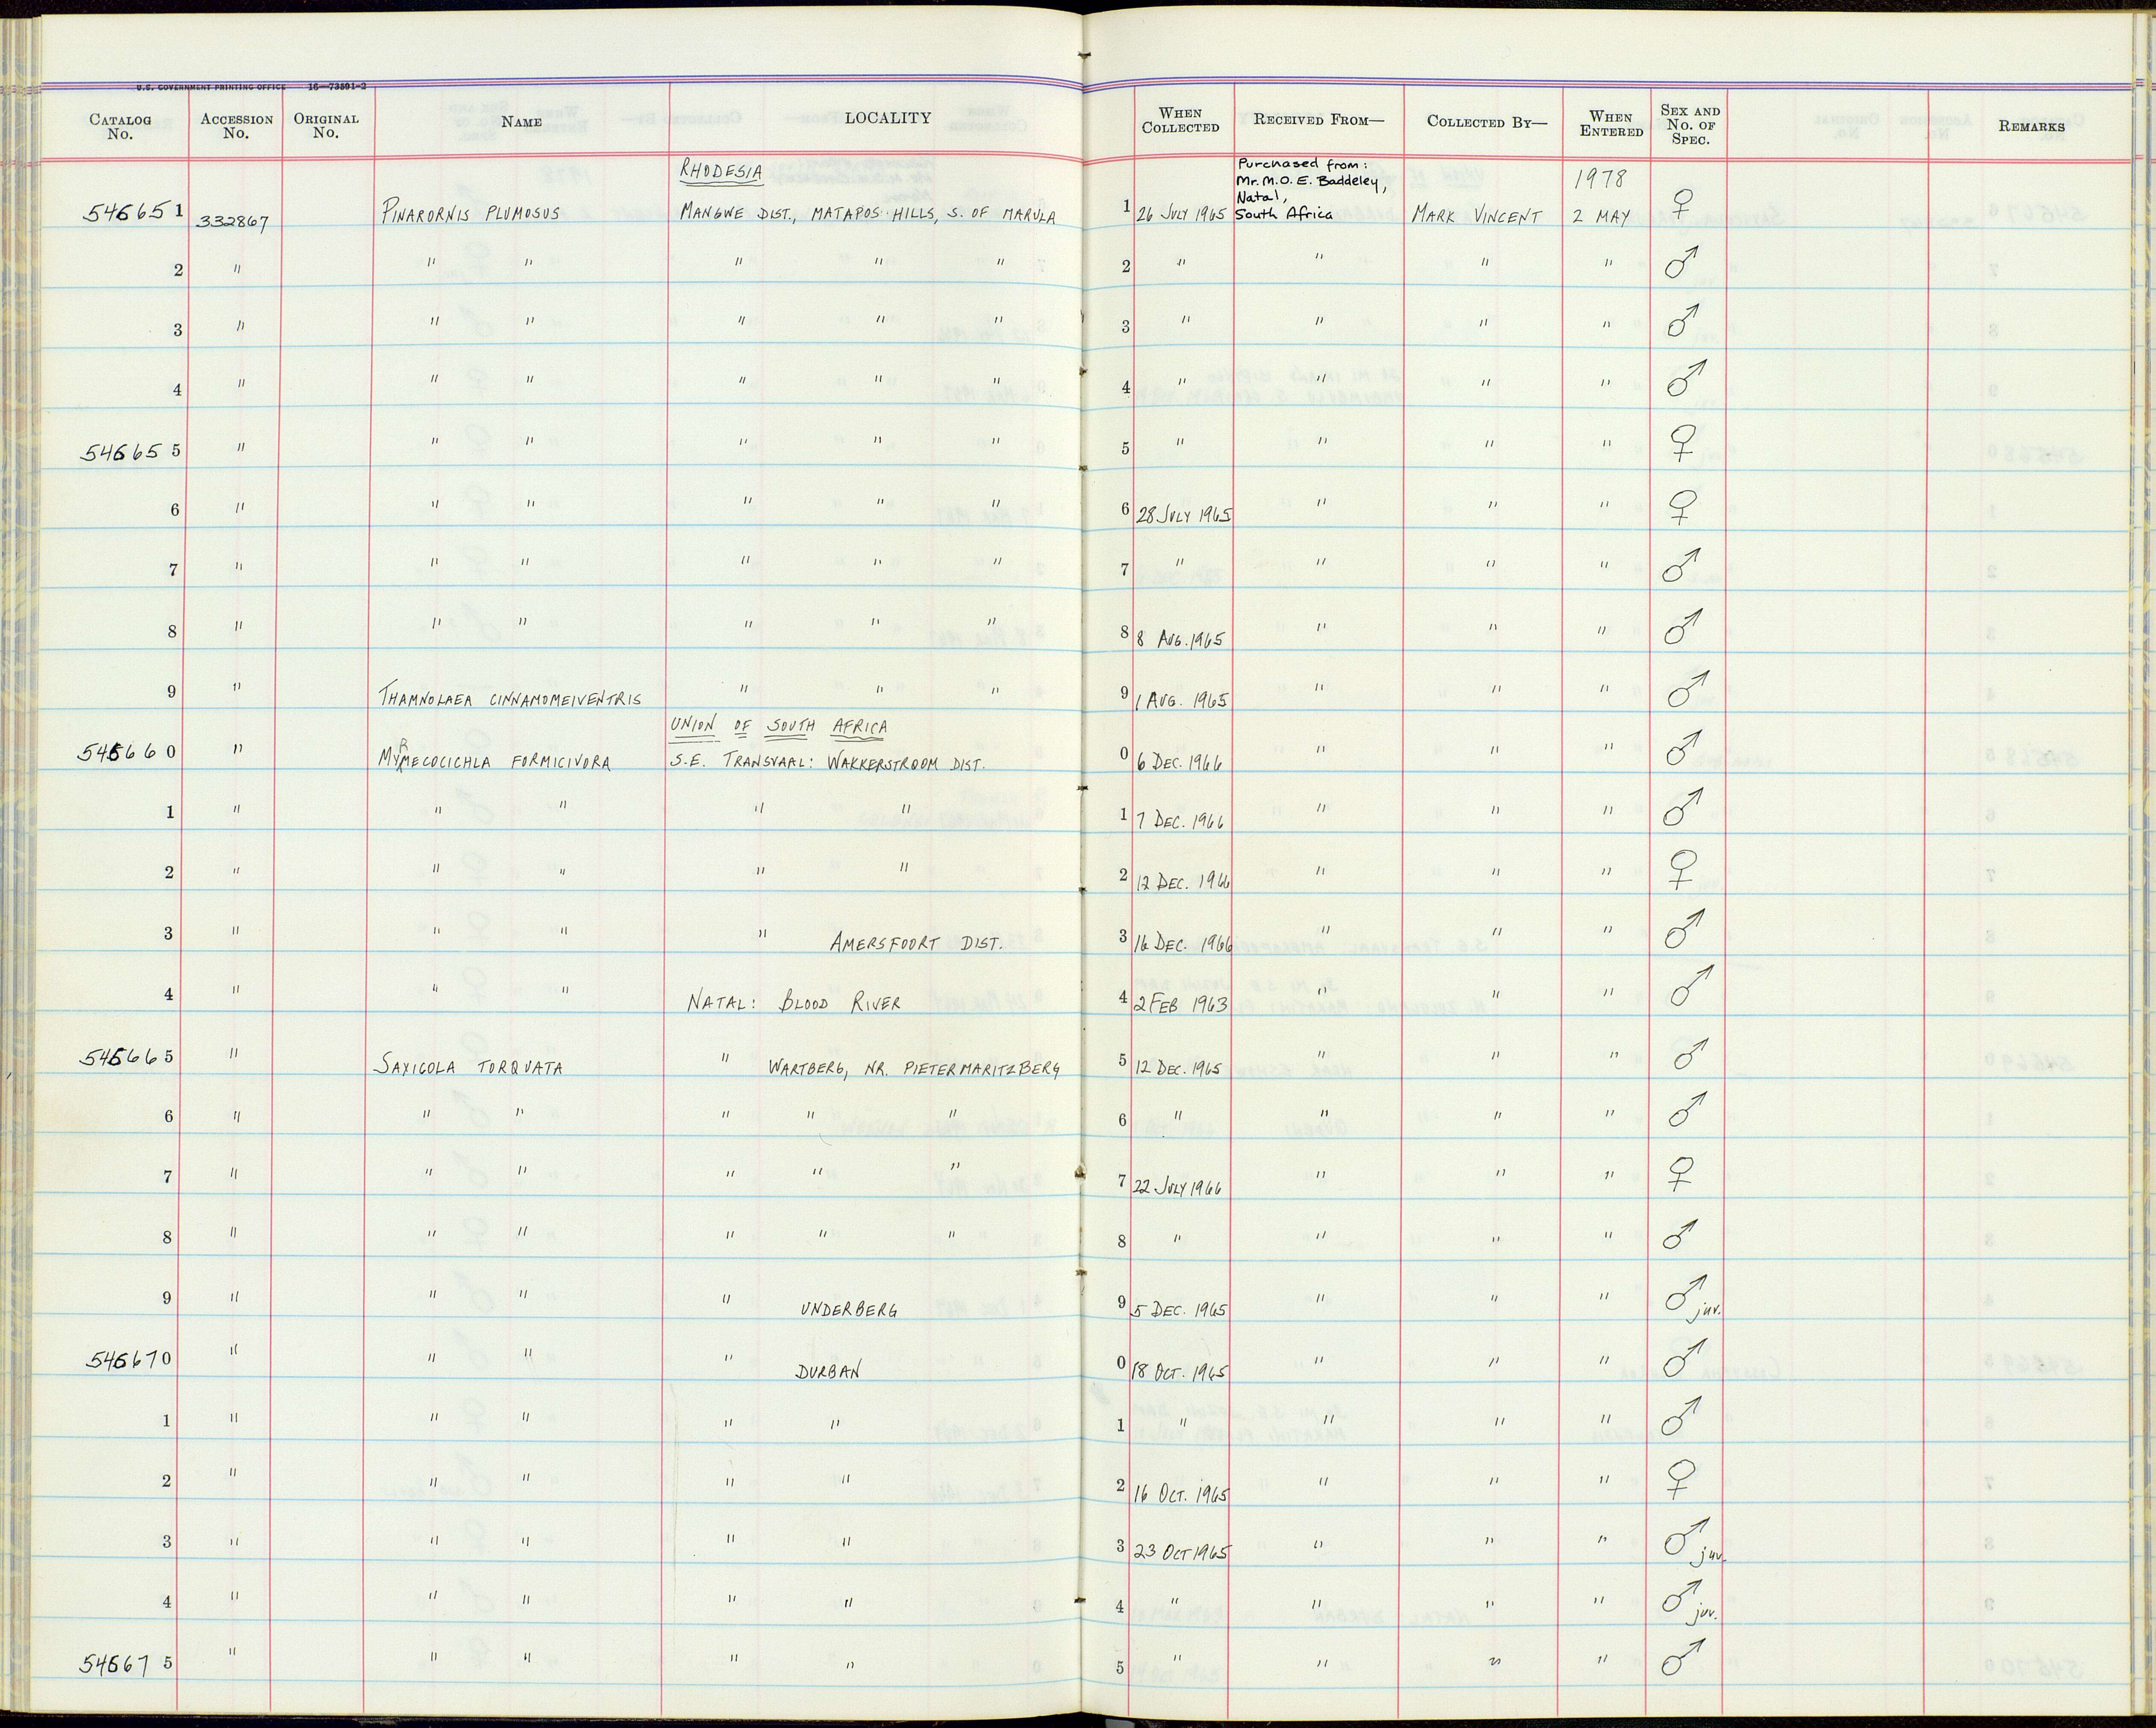 U.S. GOVERNMENT PRINTING OFFICE 16—73591-2
CATALOG No. ACCESSION No. ORIGINAL No. NAME LOCALITY WHEN COLLECTED RECEIVED FROM— COLLECTED BY— WHEN ENTERED SEX AND No. OF SPEC. REMARKS
RHODESIA Purchased from: Mr. M.O.E. Baddeley, Natal, South Africa 1978
546651 332867 PINARORNIS PLUMOSUS MANGWE DIST., MATAPOS HILLS, S. OF MARULA 1 26 JULY 1965 MARK VINCENT 2 MAY ♀
2 " " " " " " 2 " " " " ♂
3 " " " " " " 3 " " " " ♂
4 " " " " " " 4 " " " " ♂
546655 " " " " " " 5 " " " " ♀
6 " " " " " " 6 28 JULY 1965 " " " ♀
7 " " " " " " 7 " " " " ♂
8 " " " " " " 8 8 AUG. 1965 " " " ♂
9 " THAMNOLAEA CINNAMOMEIVENTRIS " " " 9 1 AUG. 1965 " " " ♂
UNION OF SOUTH AFRICA
546660 " MYRMECOCICHLA FORMICIVORA S.E. TRANSVAAL: WAKKERSTROOM DIST. 0 6 DEC. 1966 " " " ♂
1 " " " " " 1 7 DEC. 1966 " " " ♂
2 " " " " " 2 12 DEC. 1966 " " " ♀
3 " " " " AMERSFOORT DIST. 3 16 DEC. 1966 " " " ♂
4 " " " NATAL: BLOOD RIVER 4 2 FEB 1963 " " " ♂
546665 " SAXICOLA TORQUATA " WARTBERG, NR. PIETERMARITZBERG 5 12 DEC. 1965 " " " ♂
6 " " " " " " 6 " " " " ♂
7 " " " " " " 7 22 JULY 1966 " " " ♀
8 " " " " " " 8 " " " " ♂
9 " " " " UNDERBERG 9 5 DEC. 1965 " " " ♂ juv.
546670 " " " " DURBAN 0 18 OCT. 1965 " " " ♂
1 " " " " " 1 " " " " ♂
2 " " " " " 2 16 OCT. 1965 " " " ♀
3 " " " " " 3 23 OCT 1965 " " " ♂ juv.
4 " " " " " 4 " " " " ♂ juv.
546675 " " " " " 5 " " " " ♂